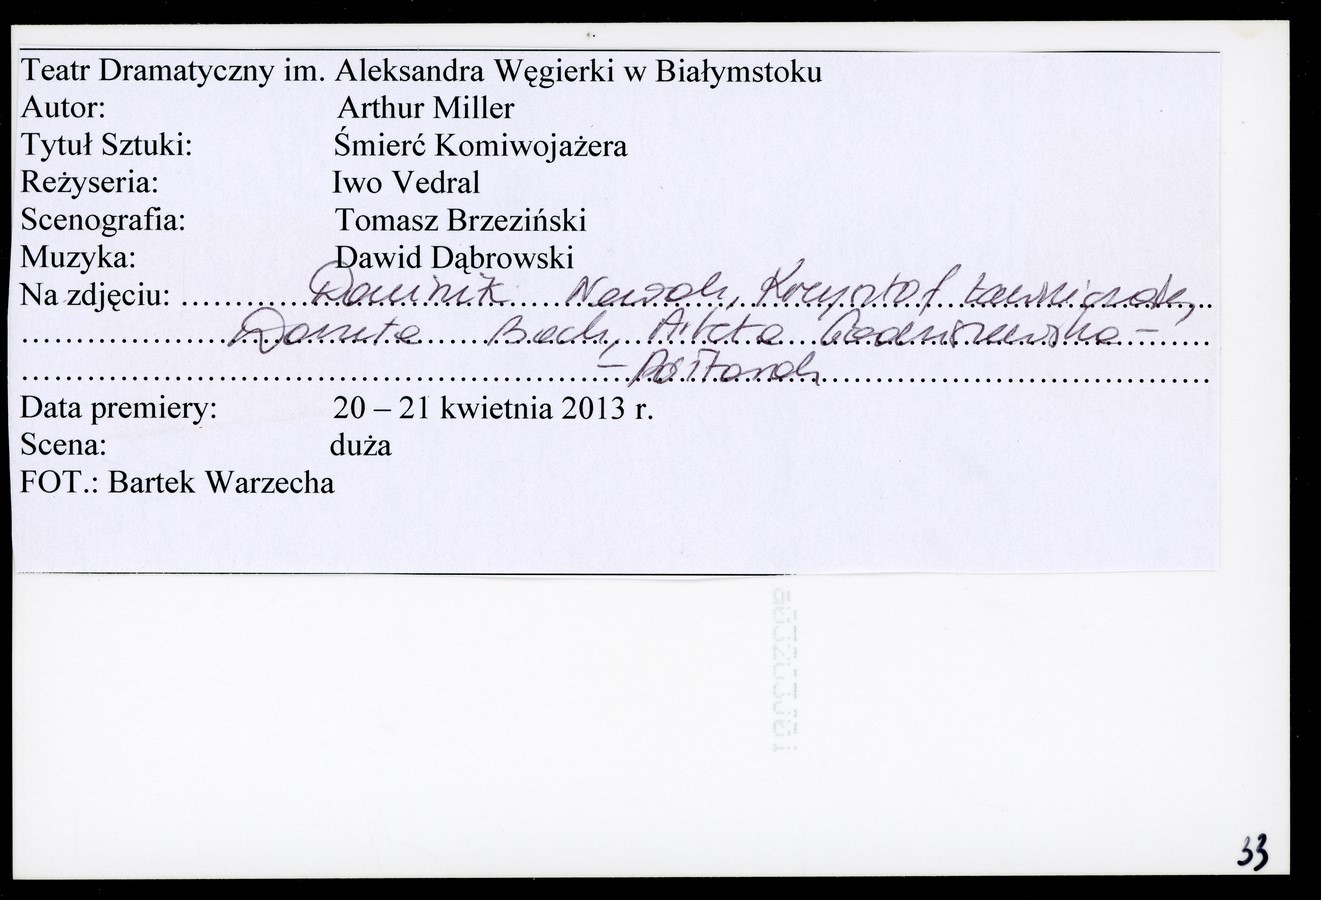 Teatr Dramatyczny im. Aleksandra Węgierki w Białymstoku
Autor: Arthur Miller
Tytuł Sztuki: Śmierć Komiwojażera
Reżyseria: Iwo Vedral
Scenografia: Tomasz Brzeziński
Muzyka: Dawid Dąbrowski
Na zdjęciu: Dominik Nowak, Krzysztof Ławniczak,
Danuta Bach, Arleta Godziszewska-
-Póstorak
Data premiery: 20 – 21 kwietnia 2013 r.
Scena: duża
FOT.: Bartek Warzecha
33